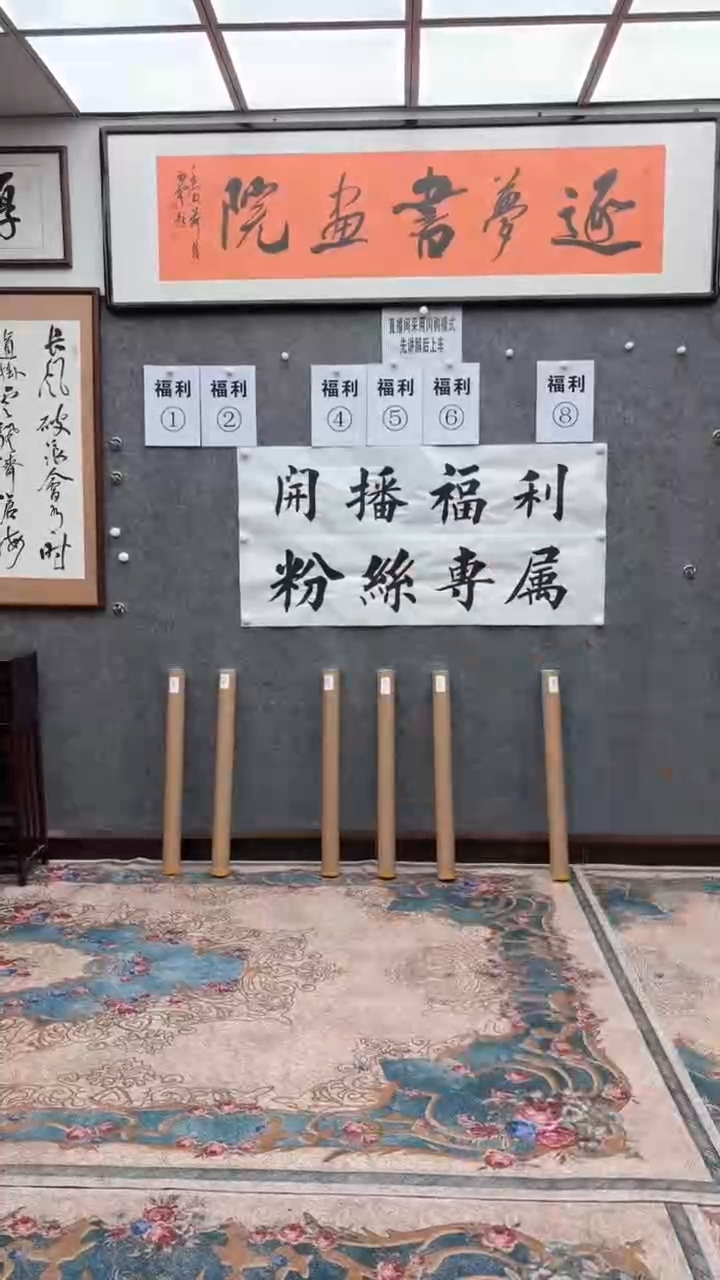 逐夢書画院
直播间采用闪购模式
先讲解后上车
福利
①
福利
②
福利
④
福利
⑤
福利
⑥
福利
⑧
開播福利
粉絲專属
长风破浪会有时
直挂云帆济沧海
厚